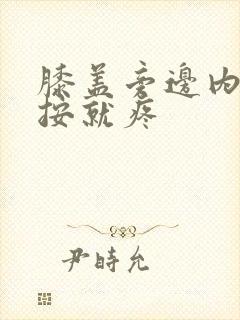 膝盖旁邊内
按就疼
尹時允